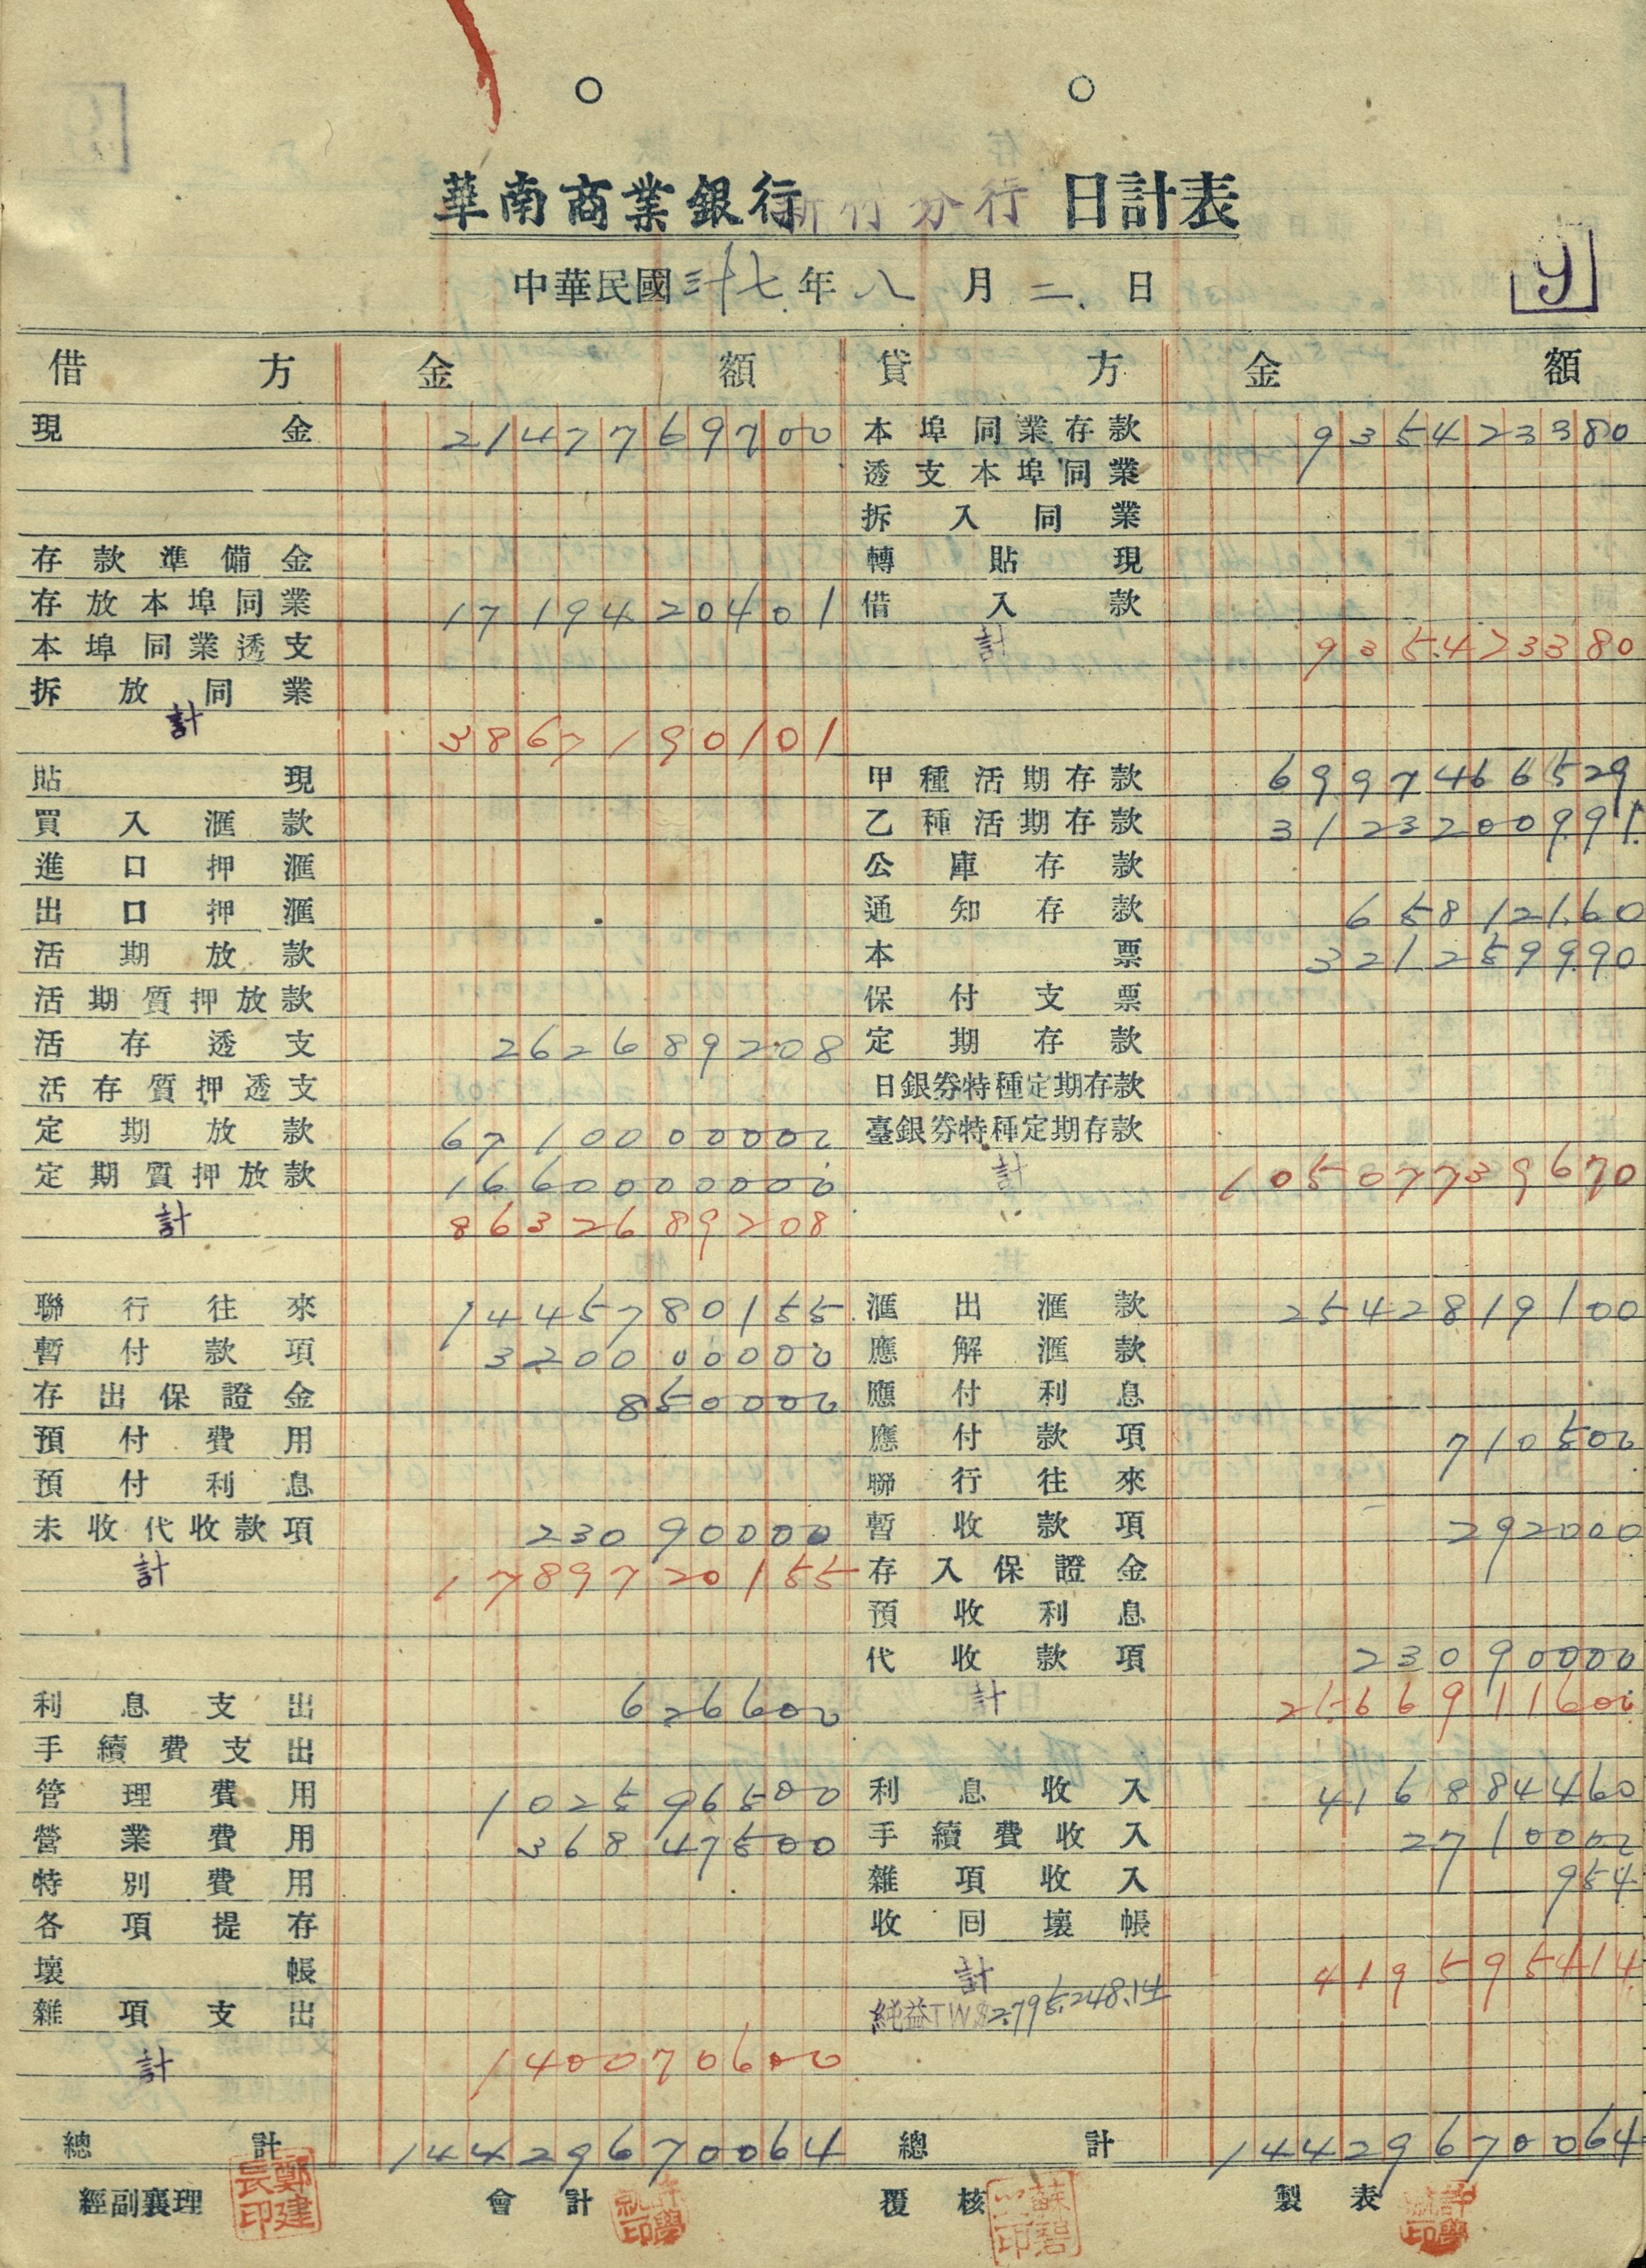 9
華南商業銀行新竹分行 日計表
中華民國三十七年八月二日
借方 金額 貸方 金額
現金 2147769700 本埠同業存款 935423380
透支本埠同業
拆入同業
存款準備金 轉貼現
存放本埠同業 1719420401 借入款
本埠同業透支 計 935423380
拆放同業
計 3867190101
貼現 甲種活期存款 6997466529
買入滙款 乙種活期存款 3123200991
進口押滙 公庫存款
出口押滙 通知存款 65812160
活期放款 本票 321259990
活期質押放款 保付支票
活存透支 262689208 定期存款
活存質押透支 日銀券特種定期存款
定期放款 6710000000 臺銀券特種定期存款
定期質押放款 1660000000 計 10507739670
計 8632689208
聯行往來 1445780155 滙出滙款 2542819100
暫付款項 320000000 應解滙款
存出保證金 850000 應付利息
預付費用 應付款項 710500
預付利息 聯行往來
未收代收款項 23090000 暫收款項 292000
計 1789720155 存入保證金
預收利息
代收款項 23090000
利息支出 626600 計 2566911600
手續費支出
管理費用 102596500 利息收入 416884460
營業費用 36847500 手續費收入 2710000
特別費用 雜項收入 954
各項提存 收回壞帳
壞帳 計 419595414
雜項支出 純益TW$2,795,248.14
計 140070600
總計 14429670064 總計 14429670064
經副襄理 會計 覆核 製表